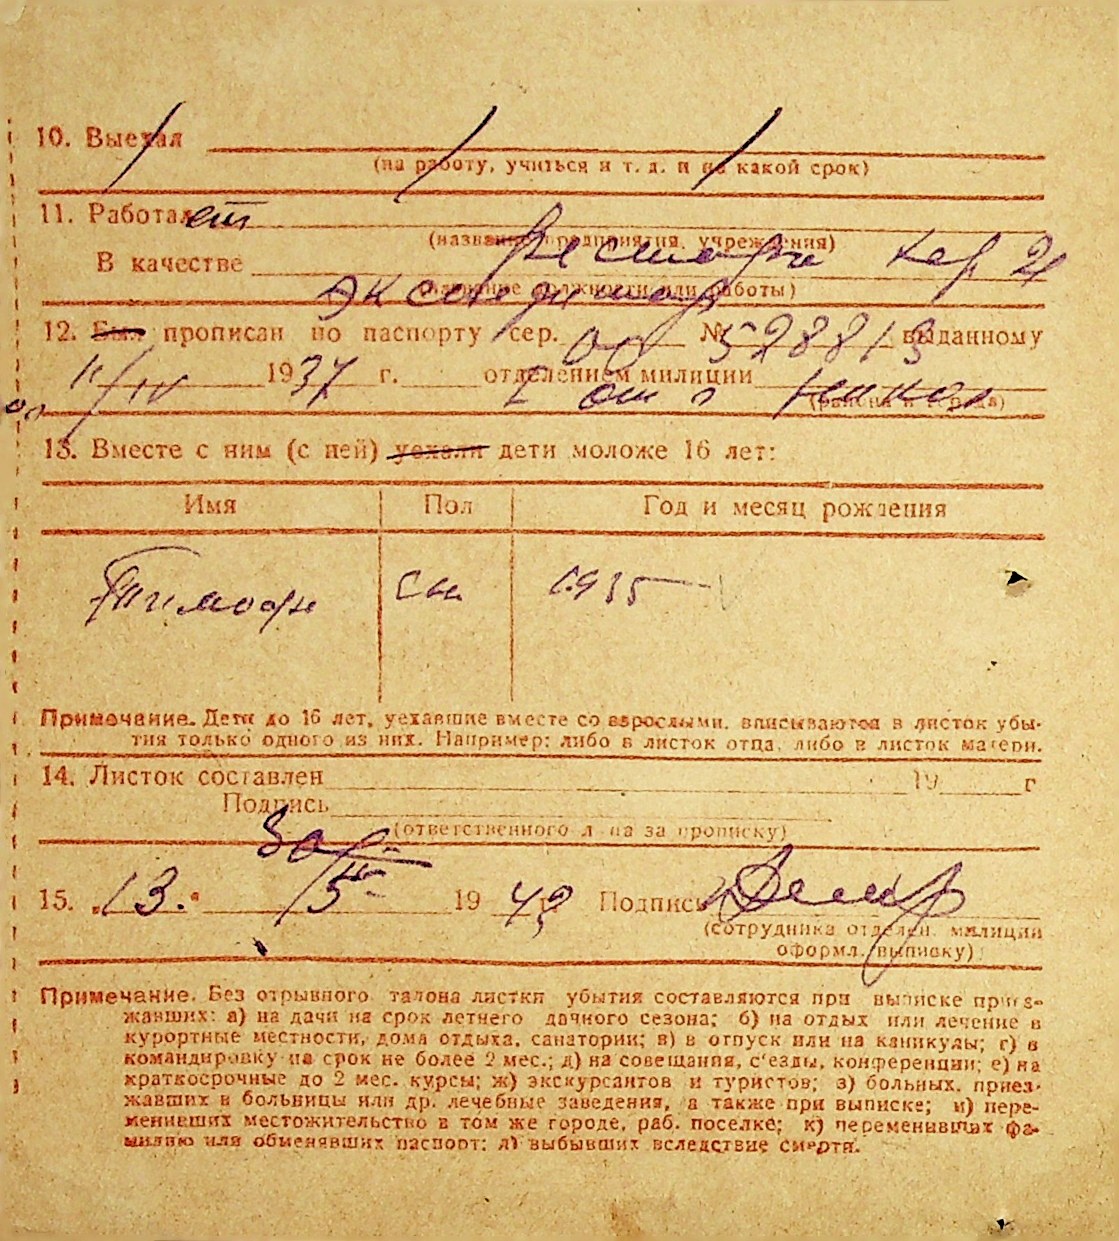 10. Выехал
(на работу, учиться и т. д. и на какой срок)
11. Работает
(название предприятия, учреждения)
В качестве
(название должности или работы)
12. Был прописан по паспорту сер. № 528813 выданному
11/IV 1937 г. отделением милиции
(района и города)
13. Вместе с ним (с ней) уехали дети моложе 16 лет:
Имя Пол Год и месяц рождения
Тимофи сн 1935
Примечание. Дети до 16 лет, уехавшие вместе со взрослыми, вписываются в листок убы-
тия только одного из них. Например: либо в листок отца, либо в листок матери.
14. Листок составлен 19 г
Подпись
(ответственного лица за прописку)
15. „13.“ /5 19 42 Подпись
(сотрудника отделен. милиции
оформл. выписку)
Примечание. Без отрывного талона листки убытия составляются при выписке приез-
жавших: а) на дачи на срок летнего дачного сезона; б) на отдых или лечение в
курортные местности, дома отдыха, санатории; в) в отпуск или на каникулы; г) в
командировку на срок не более 2 мес.; д) на совещания, с'езды, конференции; е) на
краткосрочные до 2 мес. курсы; ж) экскурсантов и туристов; з) больных, приез-
жавших в больницы или др. лечебные заведения, а также при выписке; и) пере-
менивших местожительство в том же городе, раб. поселке; к) переменивших фа-
милию или обменявших паспорт; л) выбывших вследствие смерти.